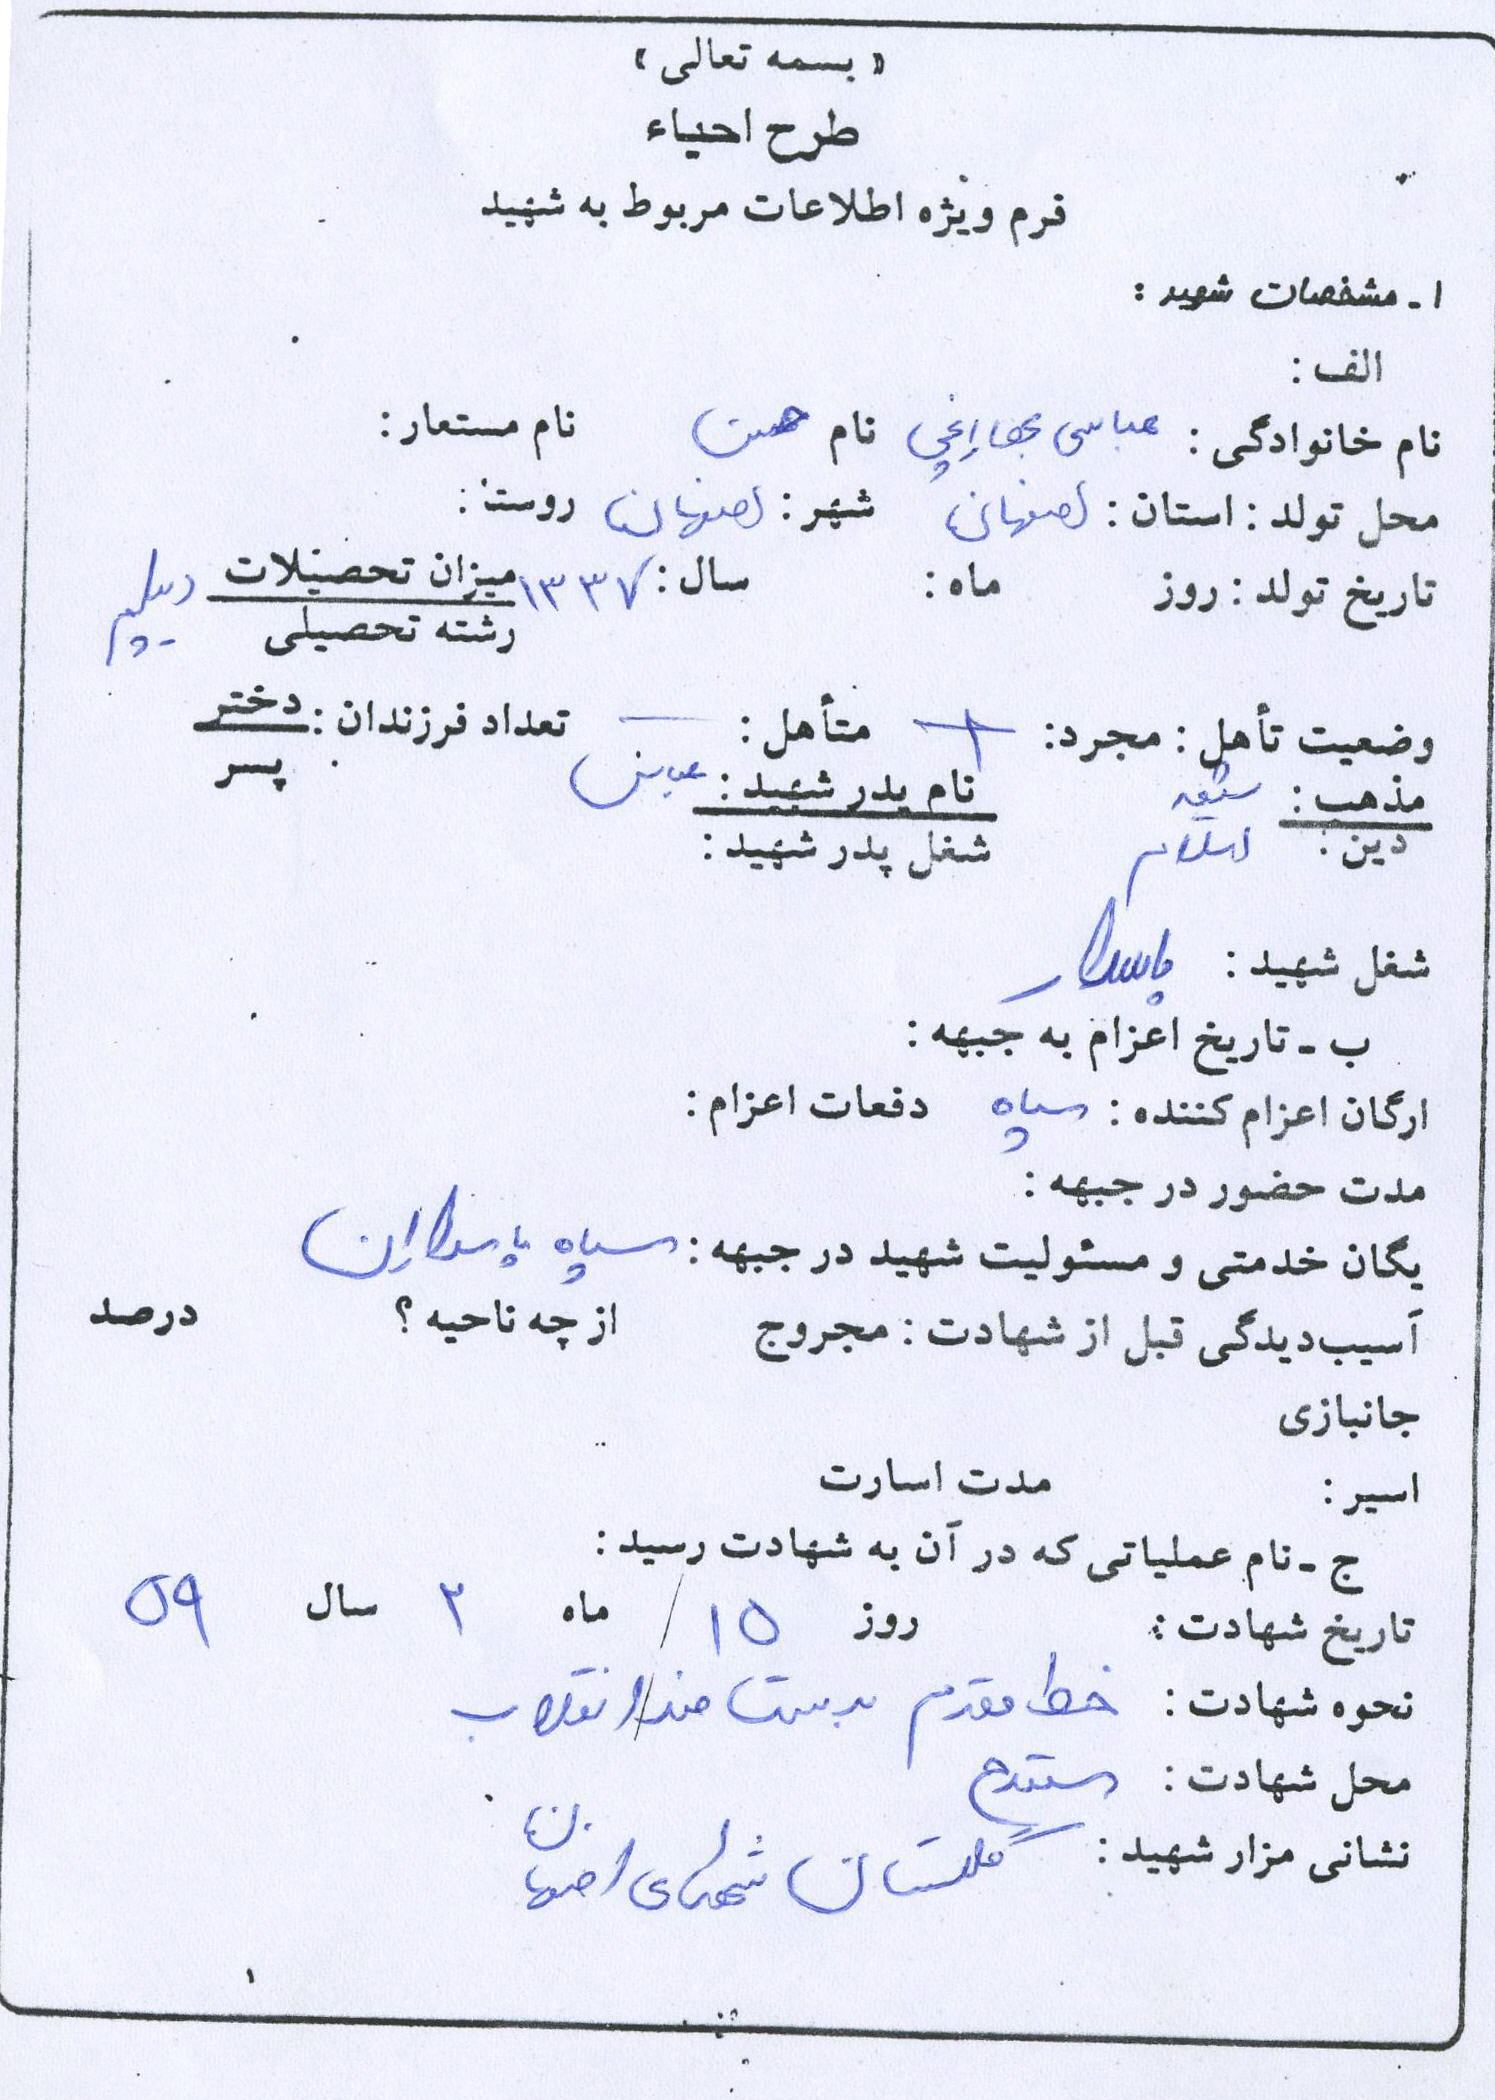 « بسمه تعالی »
طرح احیاء
فرم ویژه اطلاعات مربوط به شهید
۱ - مشخصات شهید :
الف :
نام خانوادگی : عباسی نام حسن نام مستعار :
محل تولد : استان : اصفهان شهر : اصفهان روستا :
تاریخ تولد : روز ماه : سال : ۱۳۳۷ میزان تحصیلات دیپلم
رشته تحصیلی
وضعیت تأهل : مجرد : + متأهل : — تعداد فرزندان : دختر
پسر
مذهب : شیعه نام پدر شهید : عباس
دین : اسلام شغل پدر شهید :
شغل شهید : پاسدار
ب - تاریخ اعزام به جبهه :
ارگان اعزام کننده : سپاه دفعات اعزام :
مدت حضور در جبهه :
یگان خدمتی و مسئولیت شهید در جبهه : سپاه پاسداران
آسیب‌دیدگی قبل از شهادت : مجروح از چه ناحیه ؟ درصد
جانبازی
اسیر : مدت اسارت
ج - نام عملیاتی که در آن به شهادت رسید :
تاریخ شهادت : روز ۱۵ / ماه ۲ سال ۵۹
نحوه شهادت : خط مقدم بدست ضد انقلاب
محل شهادت : سنندج
نشانی مزار شهید : گلستان شهدای اصفهان
۱